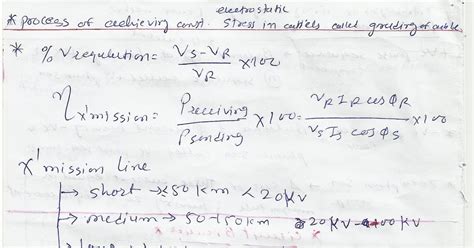 electrostatic
* process of achieving const. stress in cables called grading of cable
* % V regulution = (Vs - VR) / VR x100
η x'mission = Preceiving / Psending x100 = VR IR cos φR / Vs Is cos φs x100
x'mission line
→ short → ≤50 km <20KV
→ medium → 50-150km